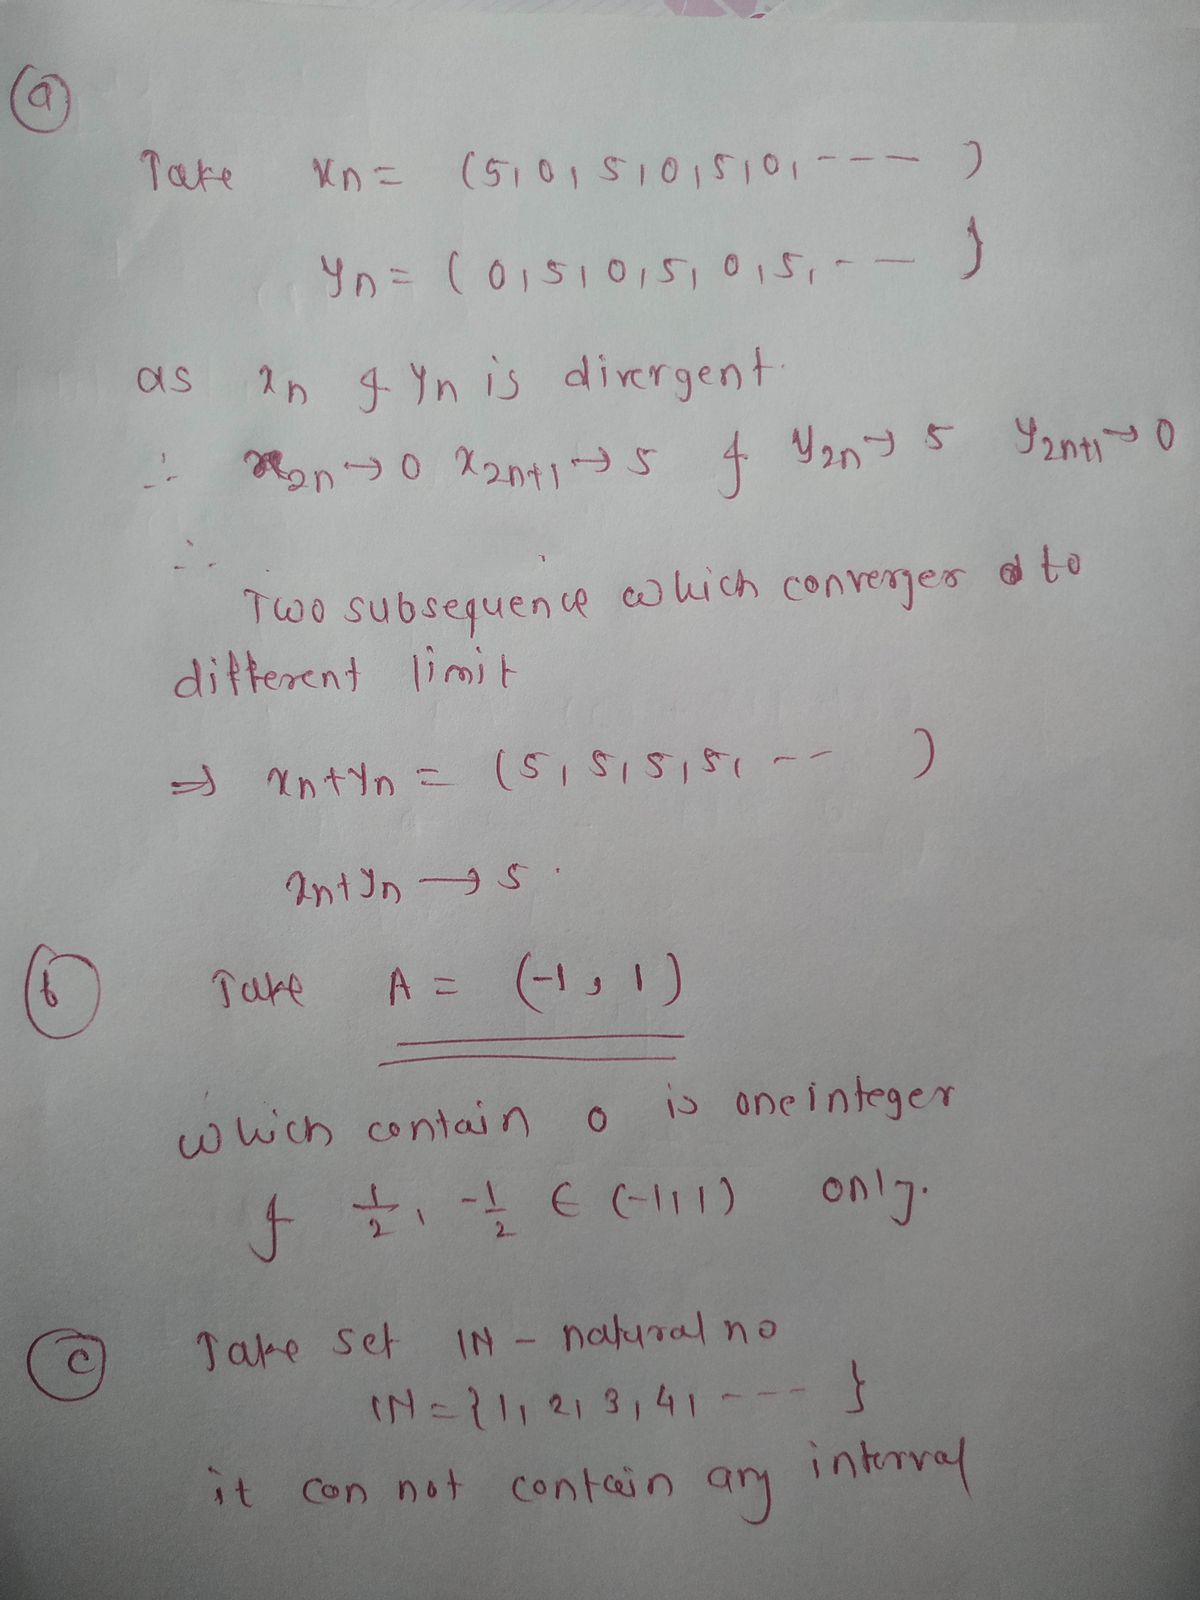 (a)
Take xn = (5, 0, 5, 0, 5, 0, --- )
yn = ( 0, 5, 0, 5, 0, 5, -- }
as xn & yn is divergent.
∴ x2n → 0 x2n+1 → 5 & y2n → 5 y2n+1 → 0
∴
Two subsequence which converges to
different limit
⇒ xn+yn = (5, 5, 5, 5, -- )
xn+yn → 5.
(b) Take A = (-1, 1)
which contain 0 is one integer
& 1/2, -1/2 ∈ (-1, 1) only.
(c) Take set IN - natural no
IN = {1, 2, 3, 4, --- }
it can not contain any interval